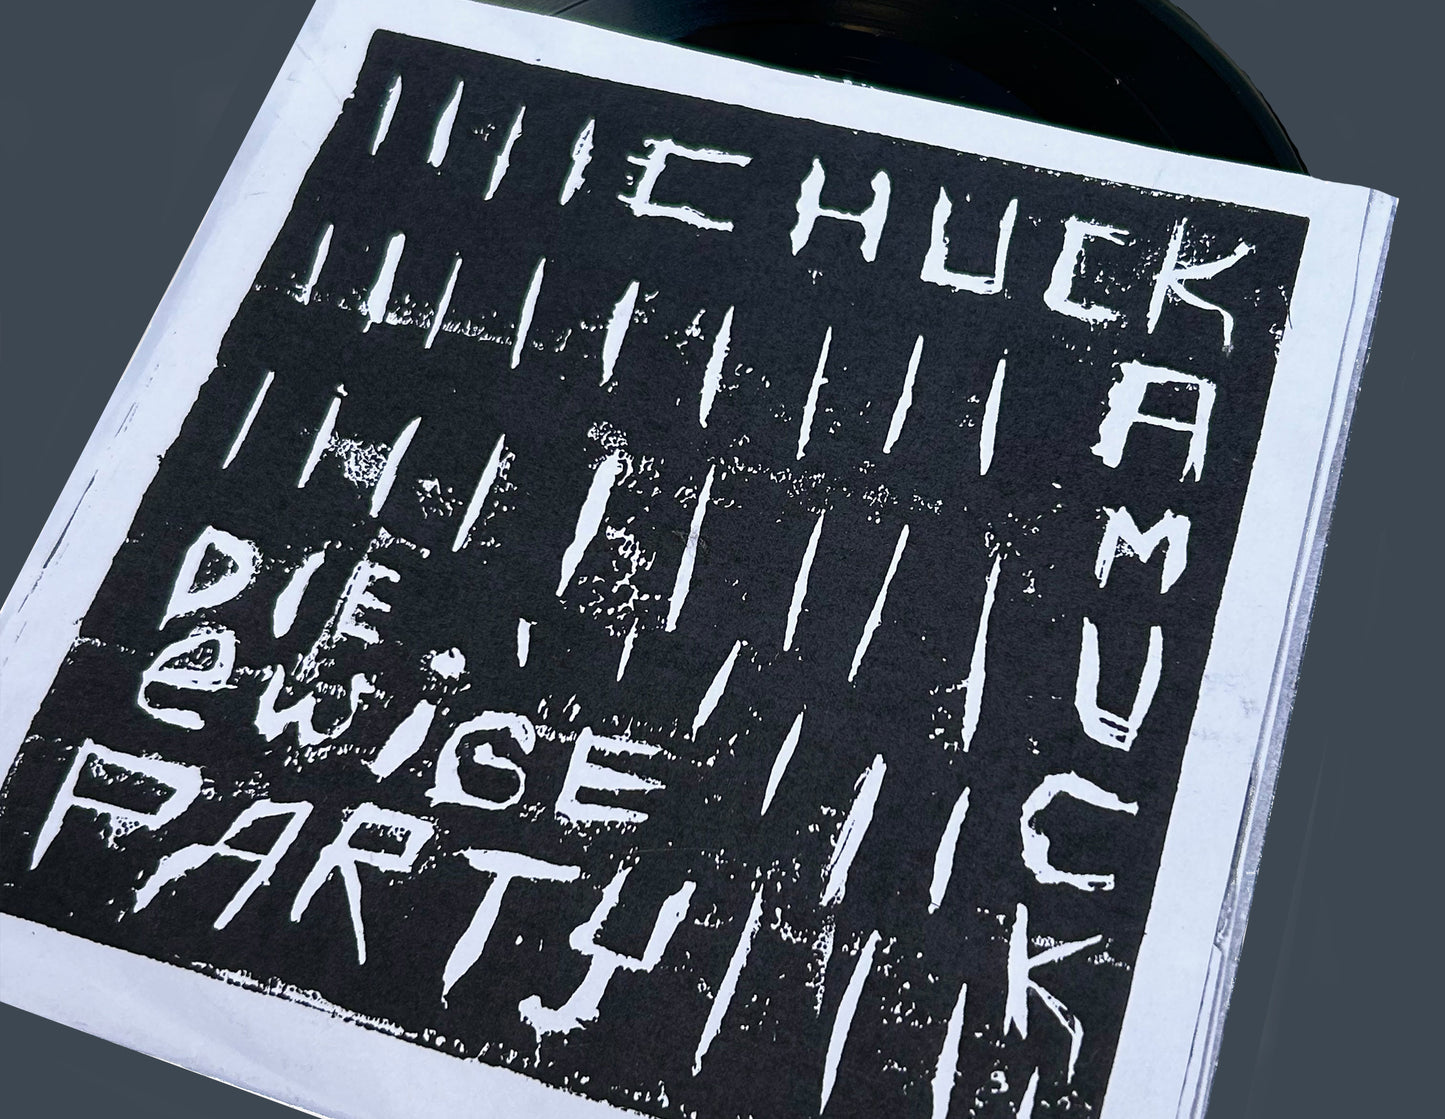 CHUCK
AMUCK
DIE
eWiGE
PARTY